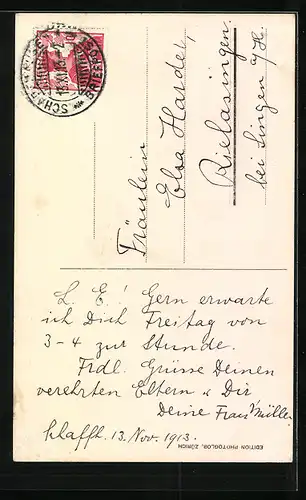 Fräulein
Elsa Harder,
Rielasingen.
bei Singen a/H.
L. E.! Gern erwarte
ich Dich Freitag von
3-4 zur Stunde.
Frdl. Grüsse Deinen
verehrten Eltern u. Dir
Deine Frau Müller.
Schaffh. 13. Nov. 1913.
EDITION PHOTOGLOB, ZÜRICH